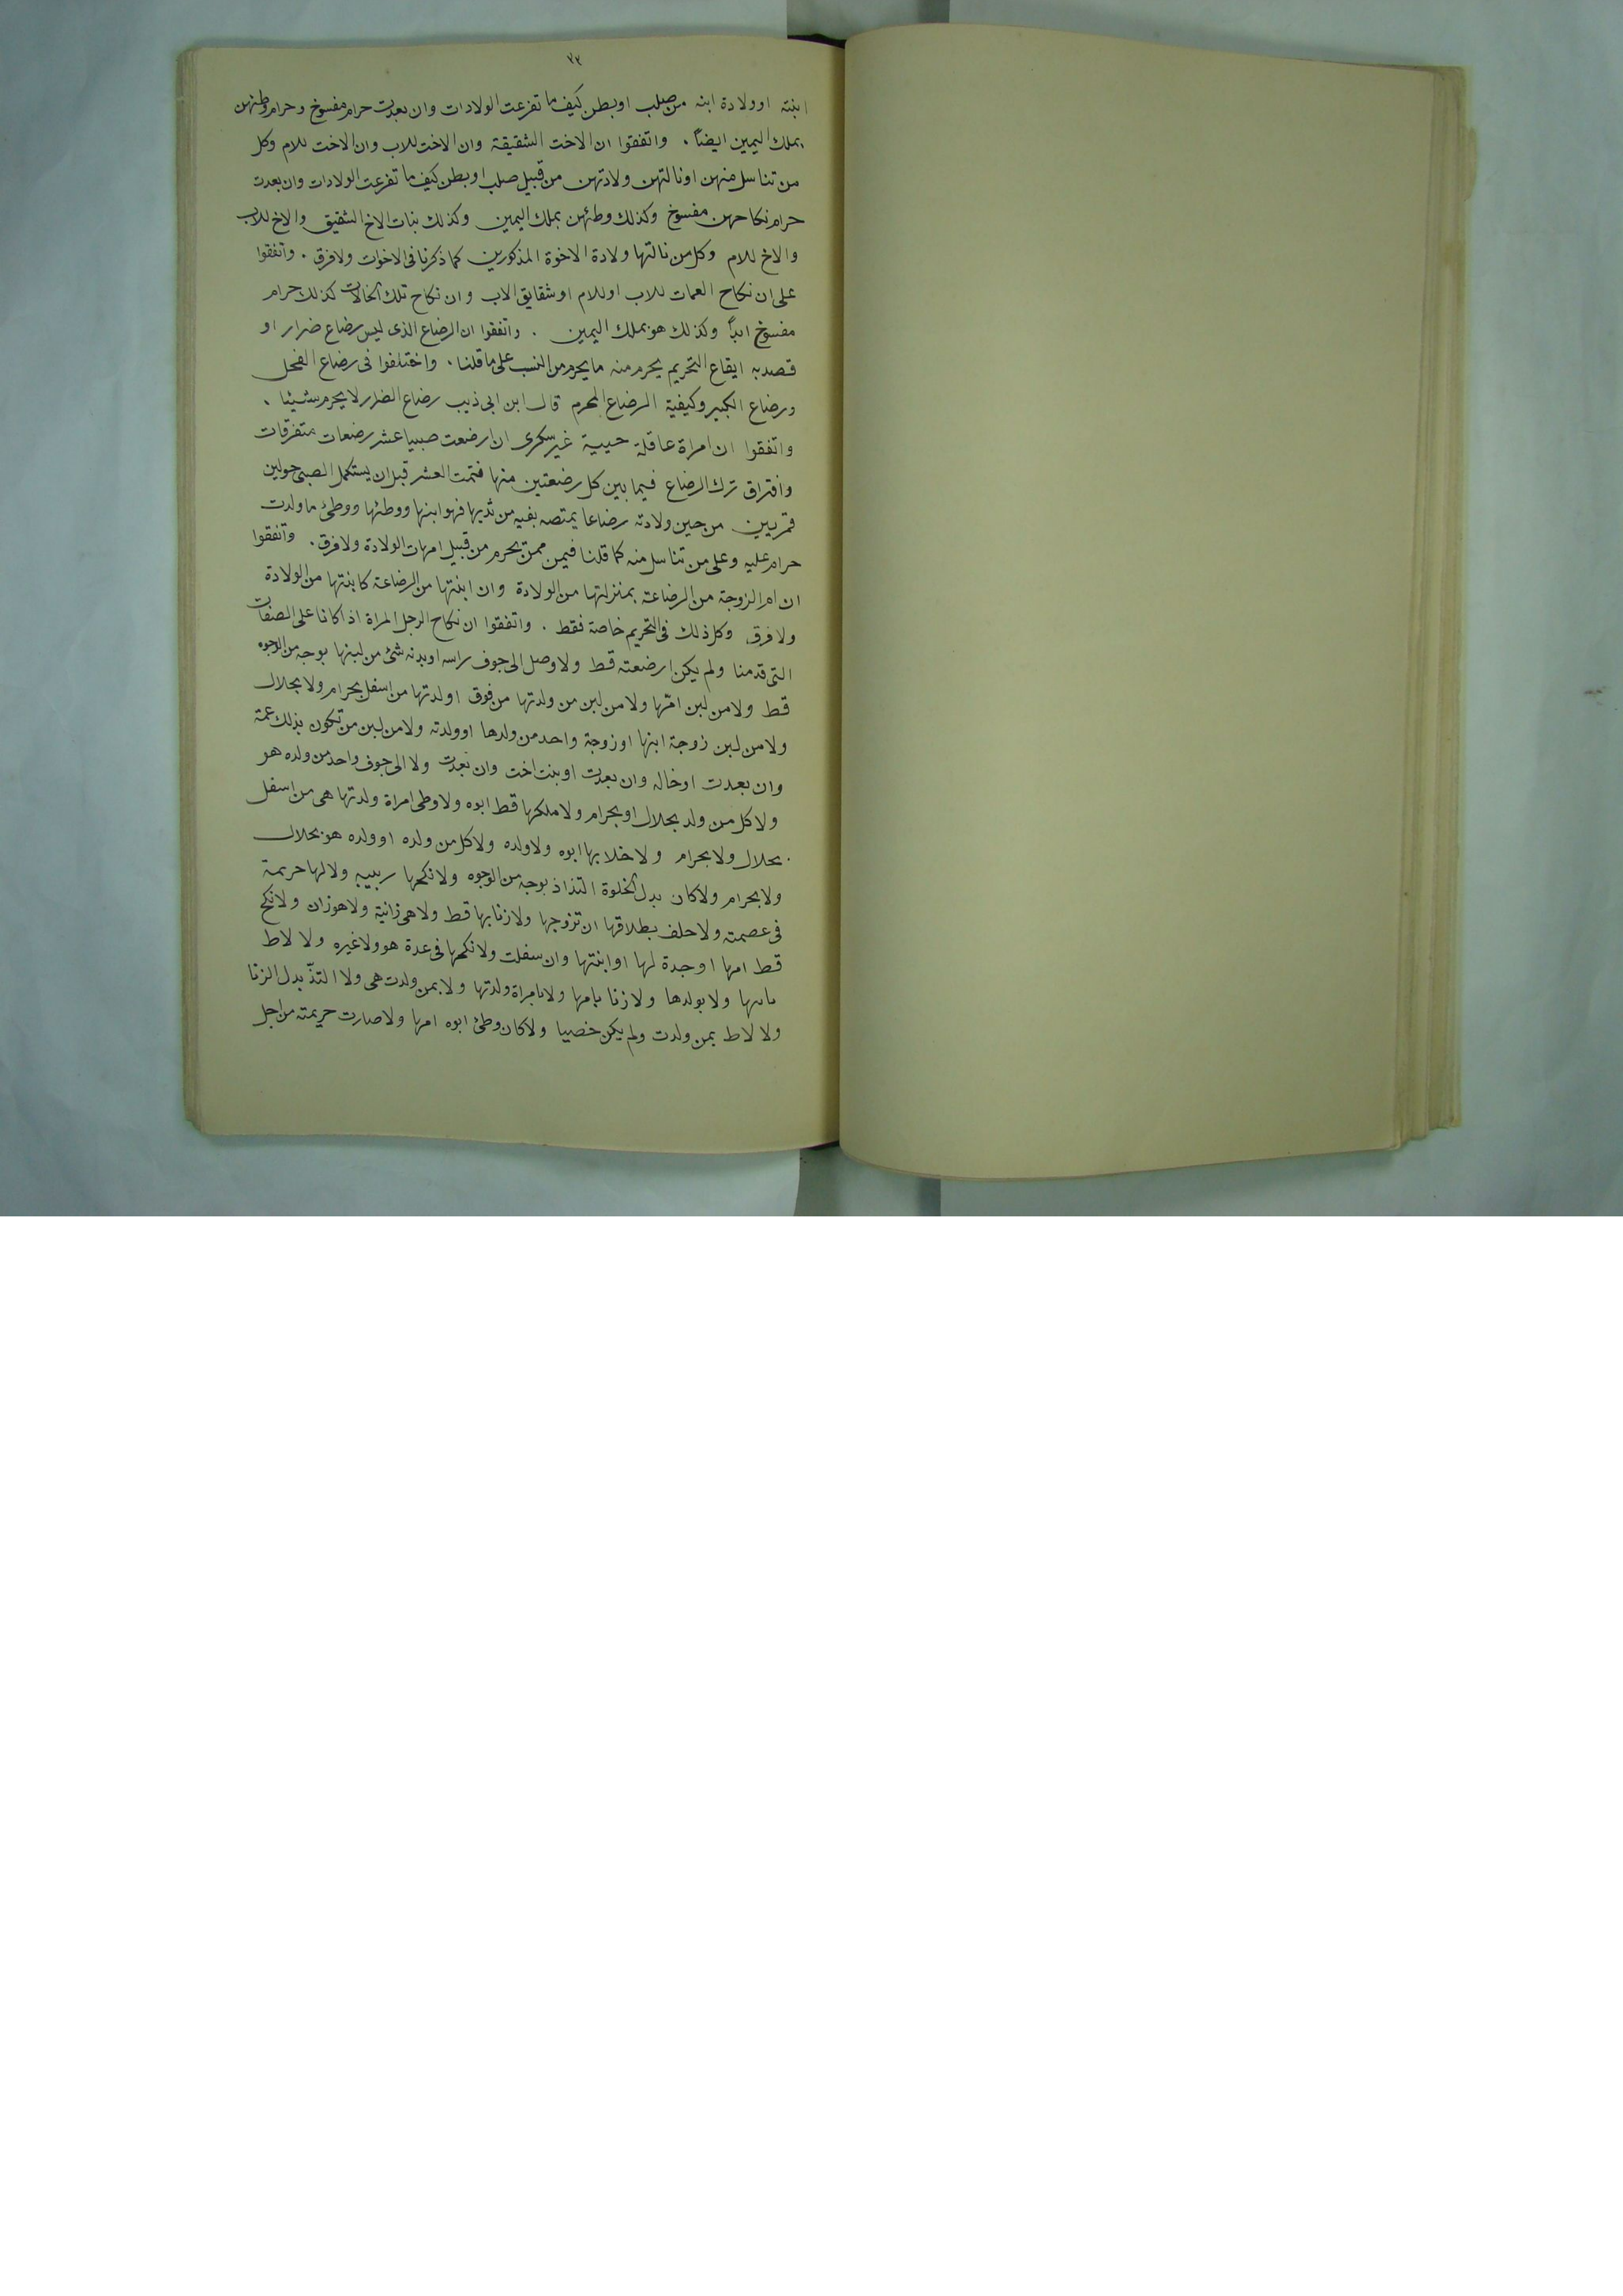 ٧٢
ابنته او ولادة ابنه من صلب او بطن كيف ما تفرعت الولادات وان بعدت حرام مفسوخ وحرام وطئهن
بملك اليمين ايضاً . واتفقوا ان الاخت الشقيقة وان الاخت للاب وان الاخت للام وكل
من تناسل منهن او نالتهن ولادتهن من قبيل صلب او بطن كيف ما تفرعت الولادات وان بعدت
حرام نكاحهن مفسوخ وكذلك وطئهن بملك اليمين وكذلك بنات الاخ الشقيق والاخ للاب
والاخ للام وكل من نالتها ولادة الاخوة المذكورين كما ذكرنا فى الاخوات ولا فرق . واتفقوا
على ان نكاح العمات للاب او للام او شقايق الاب وان نكاح تلك الحالات كذلك حرام
مفسوخ ابداً وكذلك هو بملك اليمين . واتفقوا ان الرضاع الذى ليس رضاع ضرار او
قصد به ايقاع التحريم يحرم منه ما يحرم من النسب على ما قلنا . واختلفوا فى رضاع الفحل
ورضاع الكبير وكيفية الرضاع المحرم قال ابن ابى ذيب رضاع الضرار لا يحرم شيئا .
واتفقوا ان امراة عاقلة حيية غير سكرى ان ارضعت صبيا عشر رضعات متفرقات
وافتراق ترك الرضاع فيما بين كل رضعتين منها فتمت العشر قبل ان يستكمل الصبى حولين
قمريين من حين ولادته رضاعا يمتصه بفيه من ثديها فهو ابنها ووطئها ووطئ ما ولدت
حرام عليه وعلى من تناسل منه كما قلنا فيمن ممن يحرم من قبيل امهات الولادة ولا فرق . واتفقوا
ان ام الزوجة من الرضاعة بمنزلتها من الولادة وان ابنتها من الرضاعة كابنتها من الولادة
ولا فرق وكل ذلك فى التحريم خاصة فقط . واتفقوا ان نكاح الرجل المراة اذا كانا على الصفات
التى قدمنا ولم يكن ارضعته قط ولا وصل الى جوف راسه او بدنه شئ من لبنها بوجه من الوجوه
قط ولا من لبن امها ولا من لبن من ولدتها من فوق او لدتها من اسفل بحرام ولا بحلال
ولا من لبن زوجة ابنها او زوجة واحد من ولدها او ولدته ولا من لبن من تكون بذلك عمة
وان بعدت او خاله وان بعدت او بنت اخت وان بعدت ولا الى جوف واحد من ولده هو
ولا كل من ولد بحلال او بحرام ولا ملكها قط ابوه ولا وطى امراة ولدتها هى من اسفل
بحلال ولا بحرام ولا خلا بها ابوه ولا ولده ولا كل من ولده او ولده هو بحلال
ولا بحرام ولا كان بدل الخلوة التذاذ بوجه من الوجوه ولا نكحها ربيبه ولا لها حريمة
فى عصمته ولا حلف بطلاقها ان تزوجها ولا زنا بها قط ولا هى زانية ولا هو زان ولا نكح
قط امها او جدة لها او ابنتها وان سفلت ولا نكحها فى عدة هو ولا غيره ولا لاط
ولا بولدها ولا زنا بامها ولا بامراة ولدتها ولا بمن ولدت هى ولا التذّ بدل الزنا
ولا لاط بمن ولدت ولم يكن خصيا ولا كان وطئ ابوه امها ولا صارت حريمته من اجل